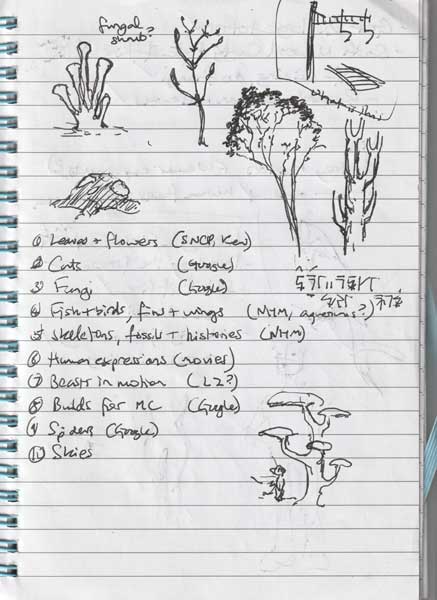 fungal
shrub?
what is this
① Leaves + flowers (SNCP, Kew)
② Cats (Google)
③ Fungi (Google)
④ Fish + birds, fins + wings (NHM, aquariums?)
⑤ Skeletons, fossils + histories (NHM)
⑥ Human expressions (movies)
⑦ Beasts in motion (LZ?)
⑧ Builds for MC (Google)
⑨ Spiders (Google)
⑩ Skies